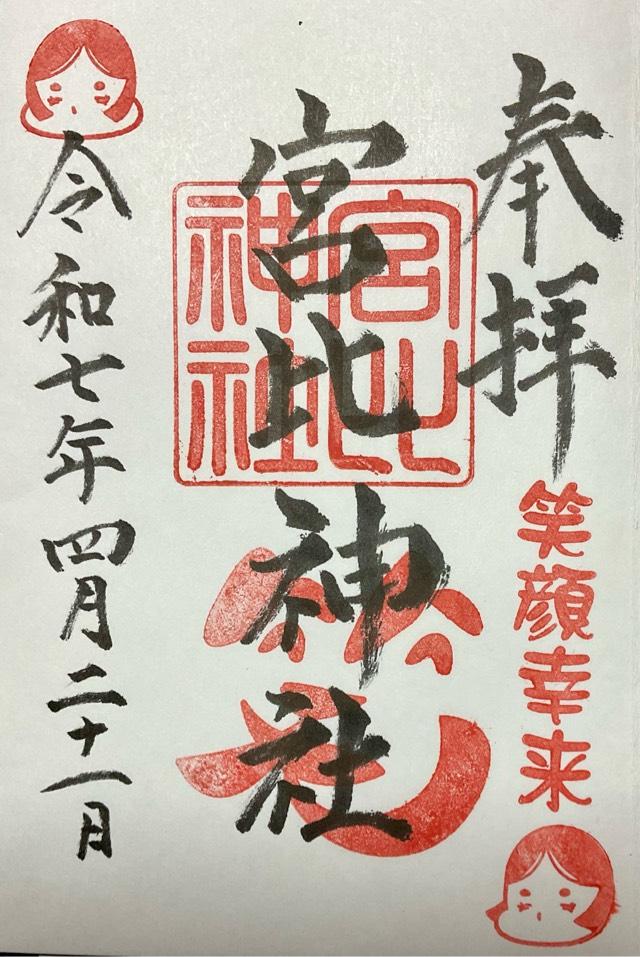 奉拝
笑顔幸来
宮比神社
宮比
神社
令和七年四月二十一日